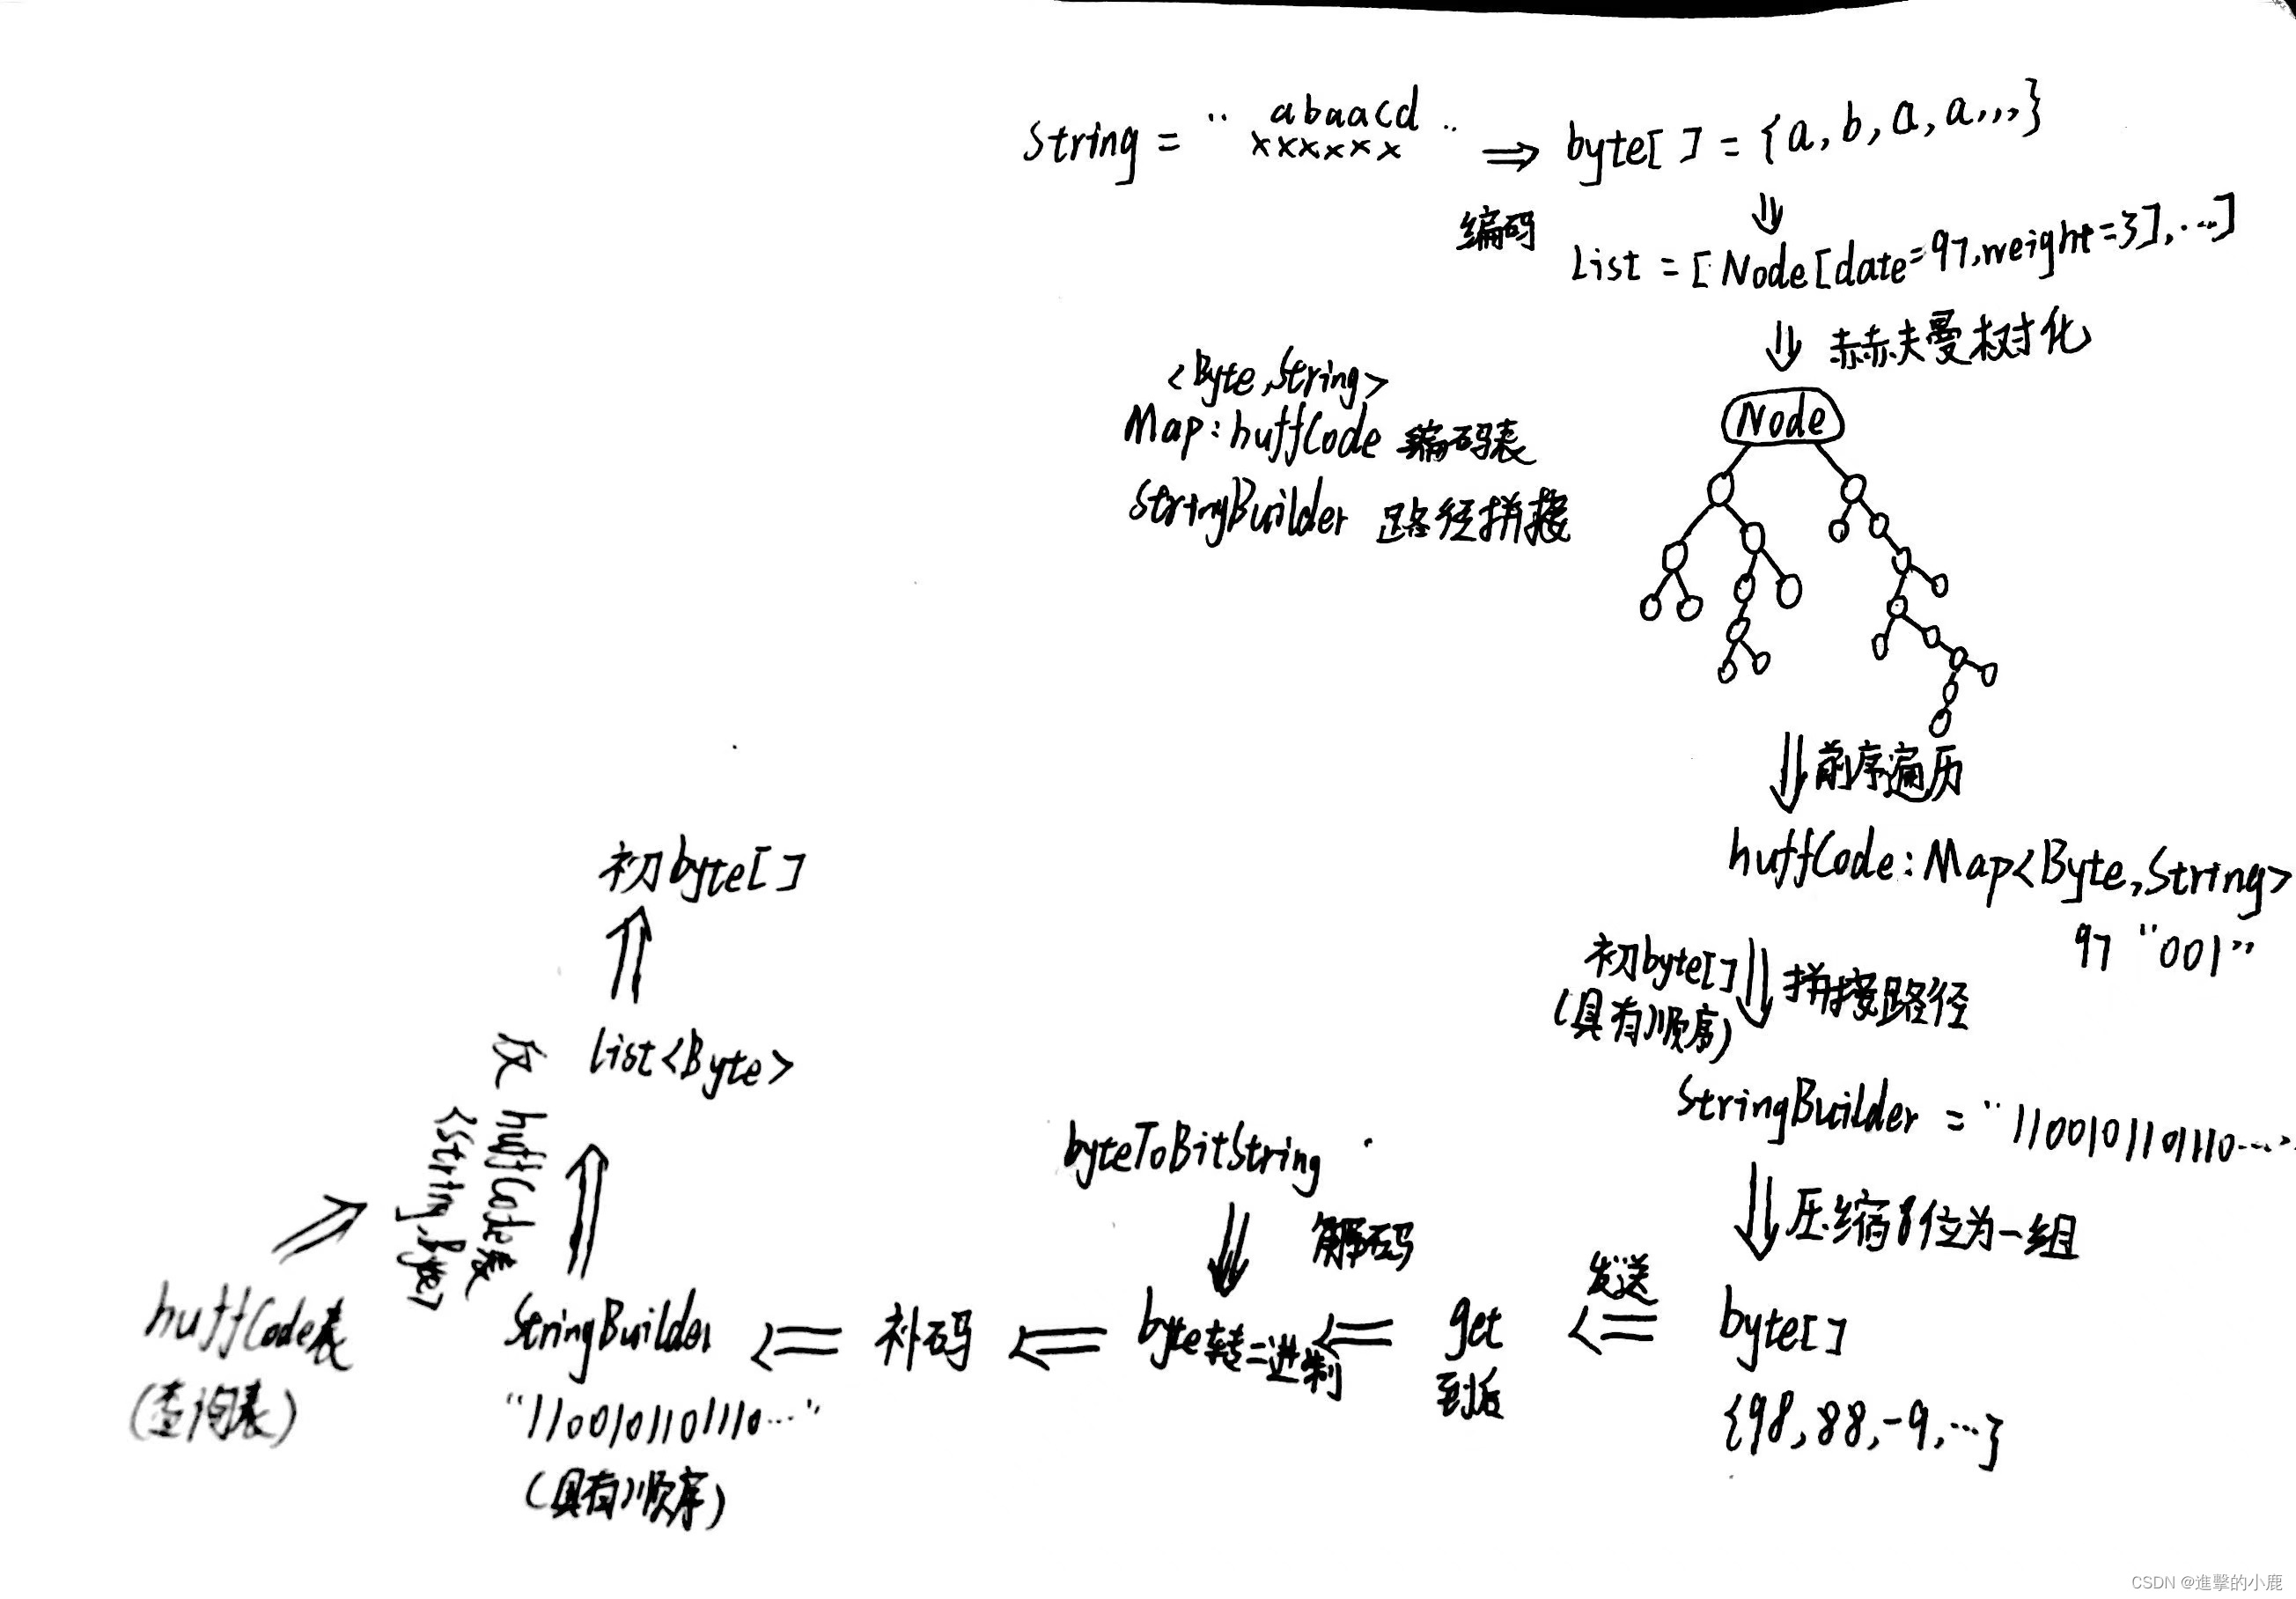 String = " abaacd "
xxxxxx
⇒ byte[ ] = {a, b, a, a,,,}
编码
List = [Node[date=97,weight=3],...]
赫夫曼树化
<Byte,String>
Map:huffCode 编码表
StringBuilder 路径拼接
Node
前序遍历
huffCode:Map<Byte,String>
97 "001"
初byte[]
(具有顺序)
拼接路径
StringBuilder = "1100101101110...."
压缩8位为一组
byte[]
{98,88,-9,...}
发送
get
到后
解码
byteToBitString
byte转二进制
补码
StringBuilder
"1100101101110..."
(具有顺序)
huffCode表
(查询表)
反 huffCode表
<String,Byte>
List<Byte>
初byte[]
CSDN @進擊的小鹿